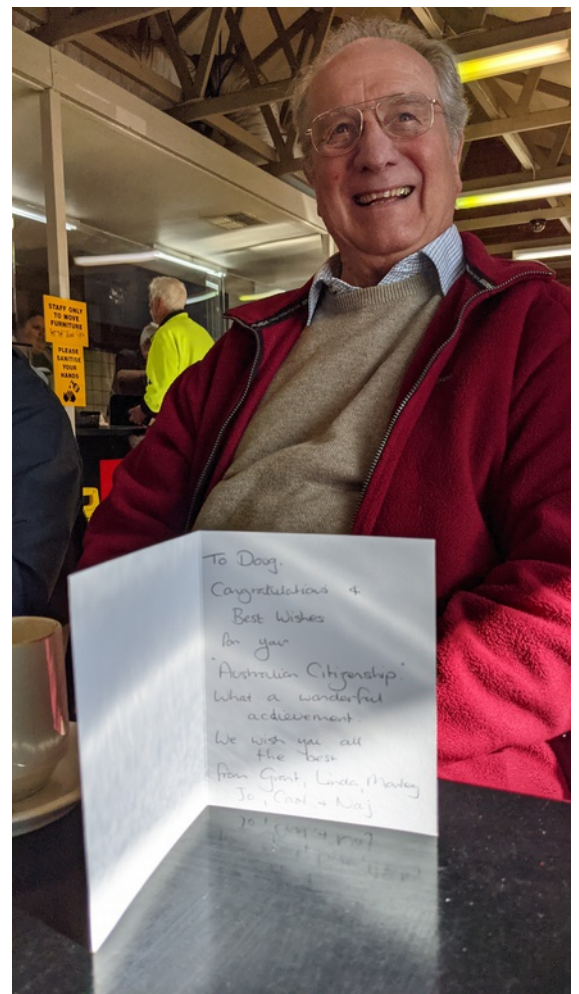 STAFF ONLY
TO MOVE
FURNITURE
PLEASE
SANITISE
YOUR
HANDS
To Doug.
Congratulations &
Best Wishes
for your
"Australian Citizenship."
What a wonderful
achievement.
We wish you all
the best
from Grant, Linda,
Jo, Carl & Naj